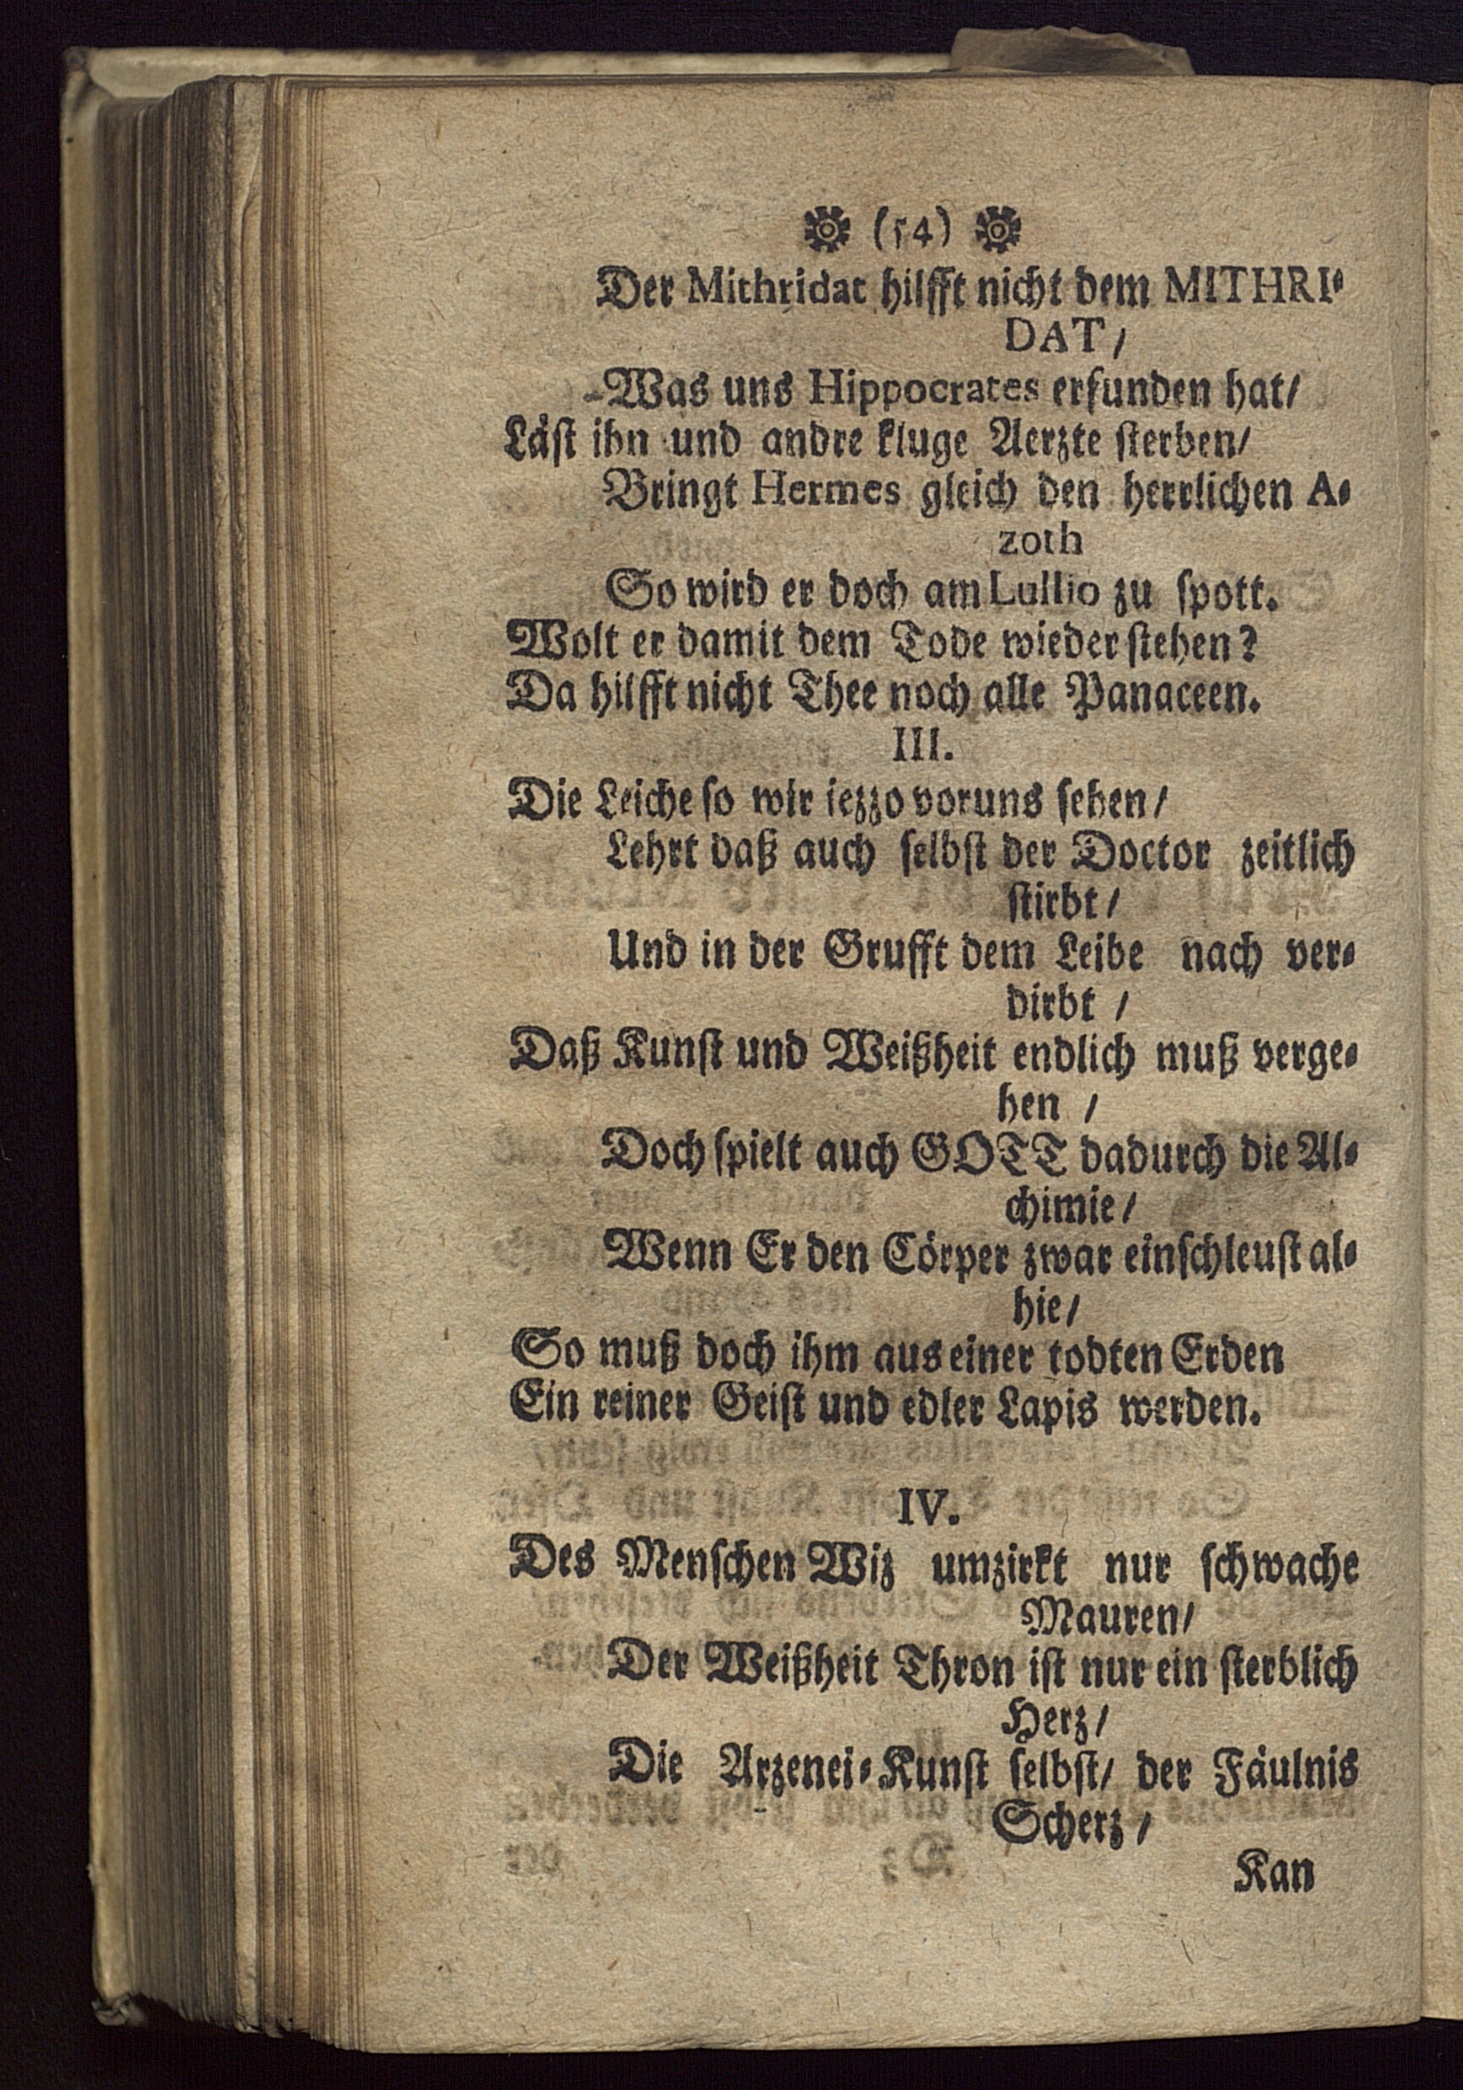 (54)
Der Mithridat hilfft nicht dem MITHRI-
DAT/
Was uns Hippocrates erfunden hat/
Läst ihn und andre kluge Aerzte sterben/
Bringt Hermes gleich den herrlichen A-
zoth
So wird er doch am Lullio zu spott.
Wolt er damit dem Tode wieder stehen?
Da hilfft nicht Thee noch alle Panaceen.
III.
Die Leiche so wir iezzo vor uns sehen/
Lehrt daß auch selbst der Doctor zeitlich
stirbt/
Und in der Grufft dem Leibe nach ver-
dirbt /
Daß Kunst und Weißheit endlich muß verge-
hen /
Doch spielt auch GOTT dadurch die Al-
chimie/
Wenn Er den Cörper zwar einschleust al-
hie/
So muß doch ihm aus einer todten Erden
Ein reiner Geist und edler Lapis werden.
IV.
Des Menschen Wiz umzirkt nur schwache
Mauren/
Der Weißheit Thron ist nur ein sterblich
Herz/
Die Arzenei-Kunst selbst/ der Fäulnis
Scherz /
Kan